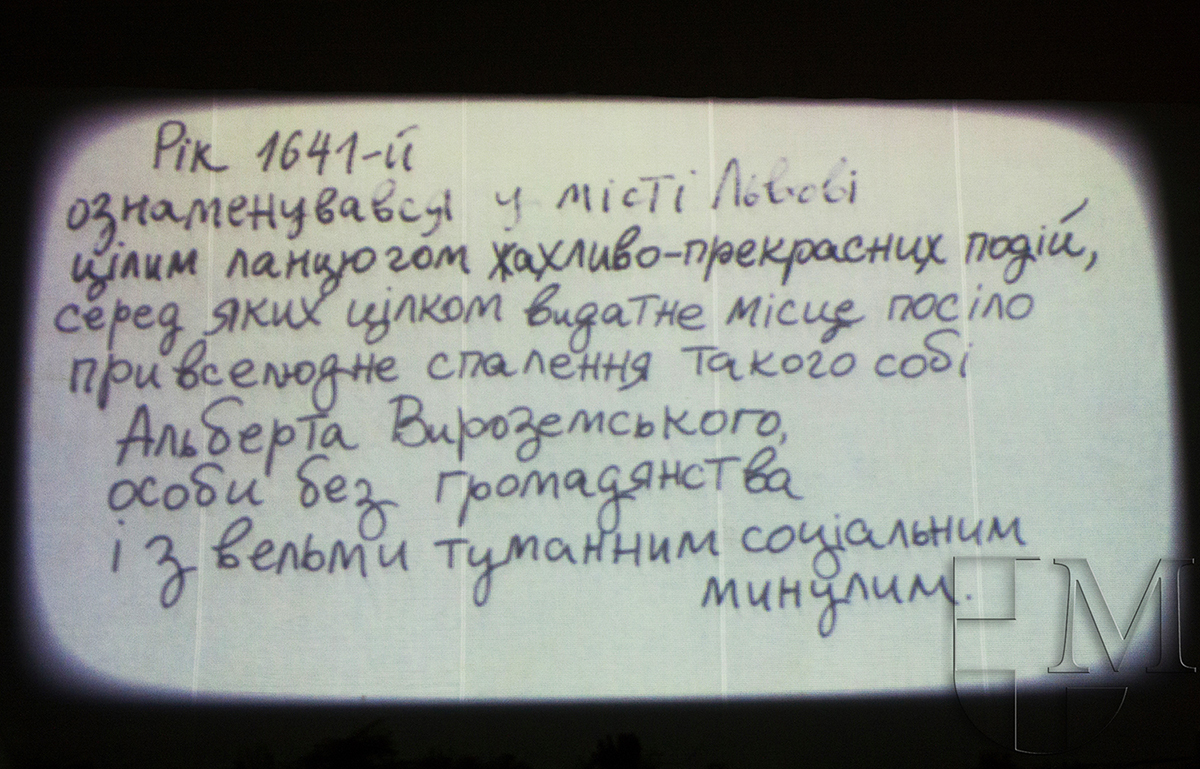 Рік 1641-й
ознаменувався у місті Львові
цілим ланцюгом жахливо-прекрасних подій,
серед яких цілком видатне місце посіло
привселюдне спалення такого собі
Альберта Вироземського,
особи без громадянства
і з вельми туманним соціальним
минулим.
М